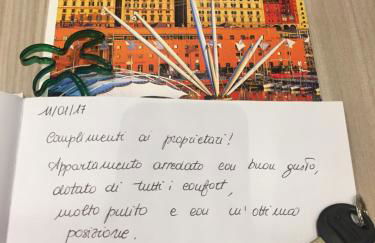 11/01/17
Complimenti ai proprietari!
Appartamento arredato con buon gusto,
dotato di tutti i confort,
molto pulito e con un'ottima
posizione.